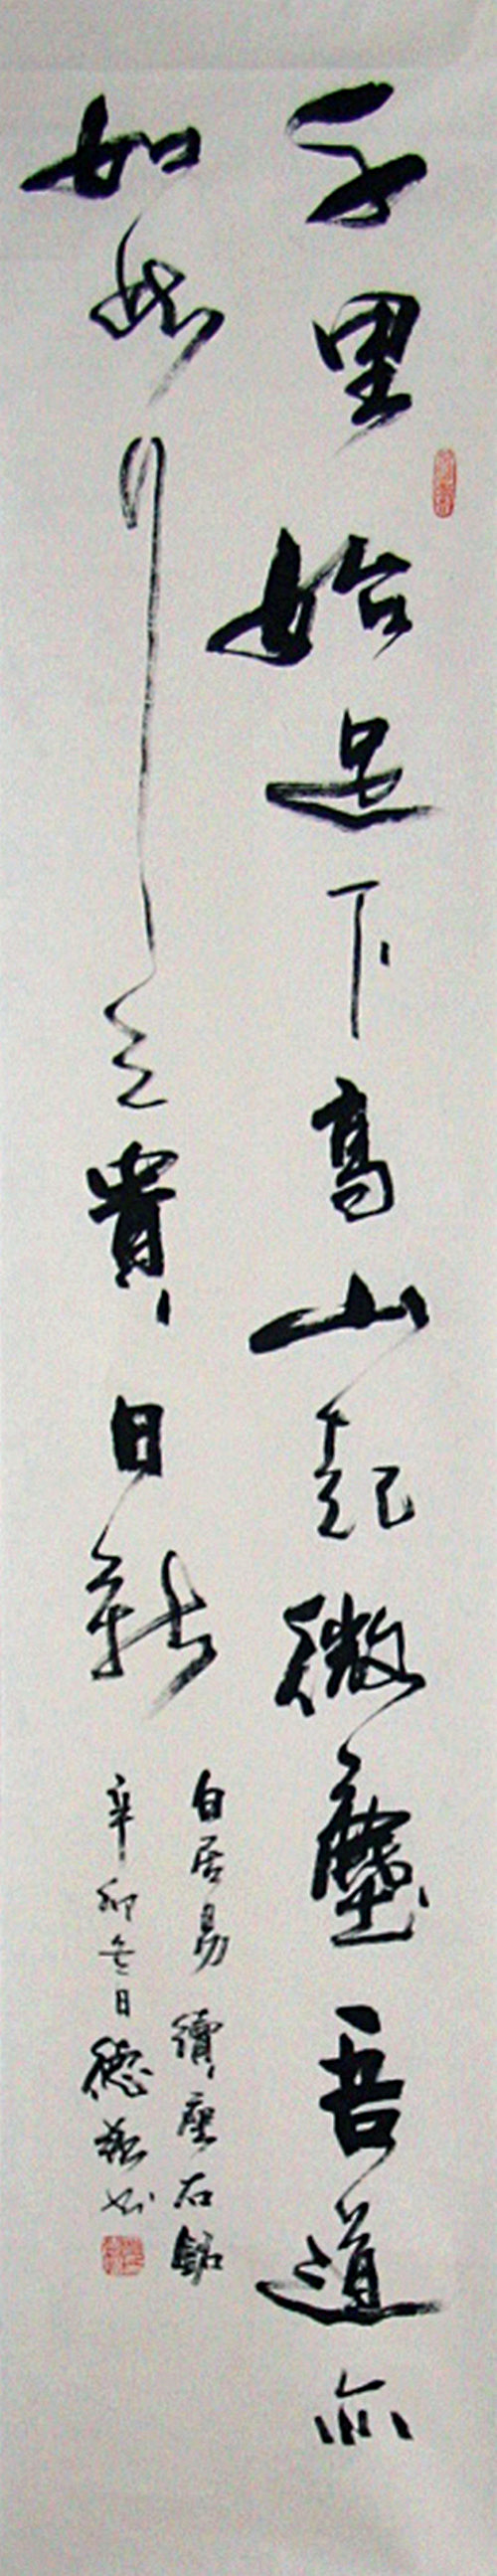 千里始足下高山起微塵吾道亦
如此行之貴日新
白居易續座右銘
辛卯冬日德书